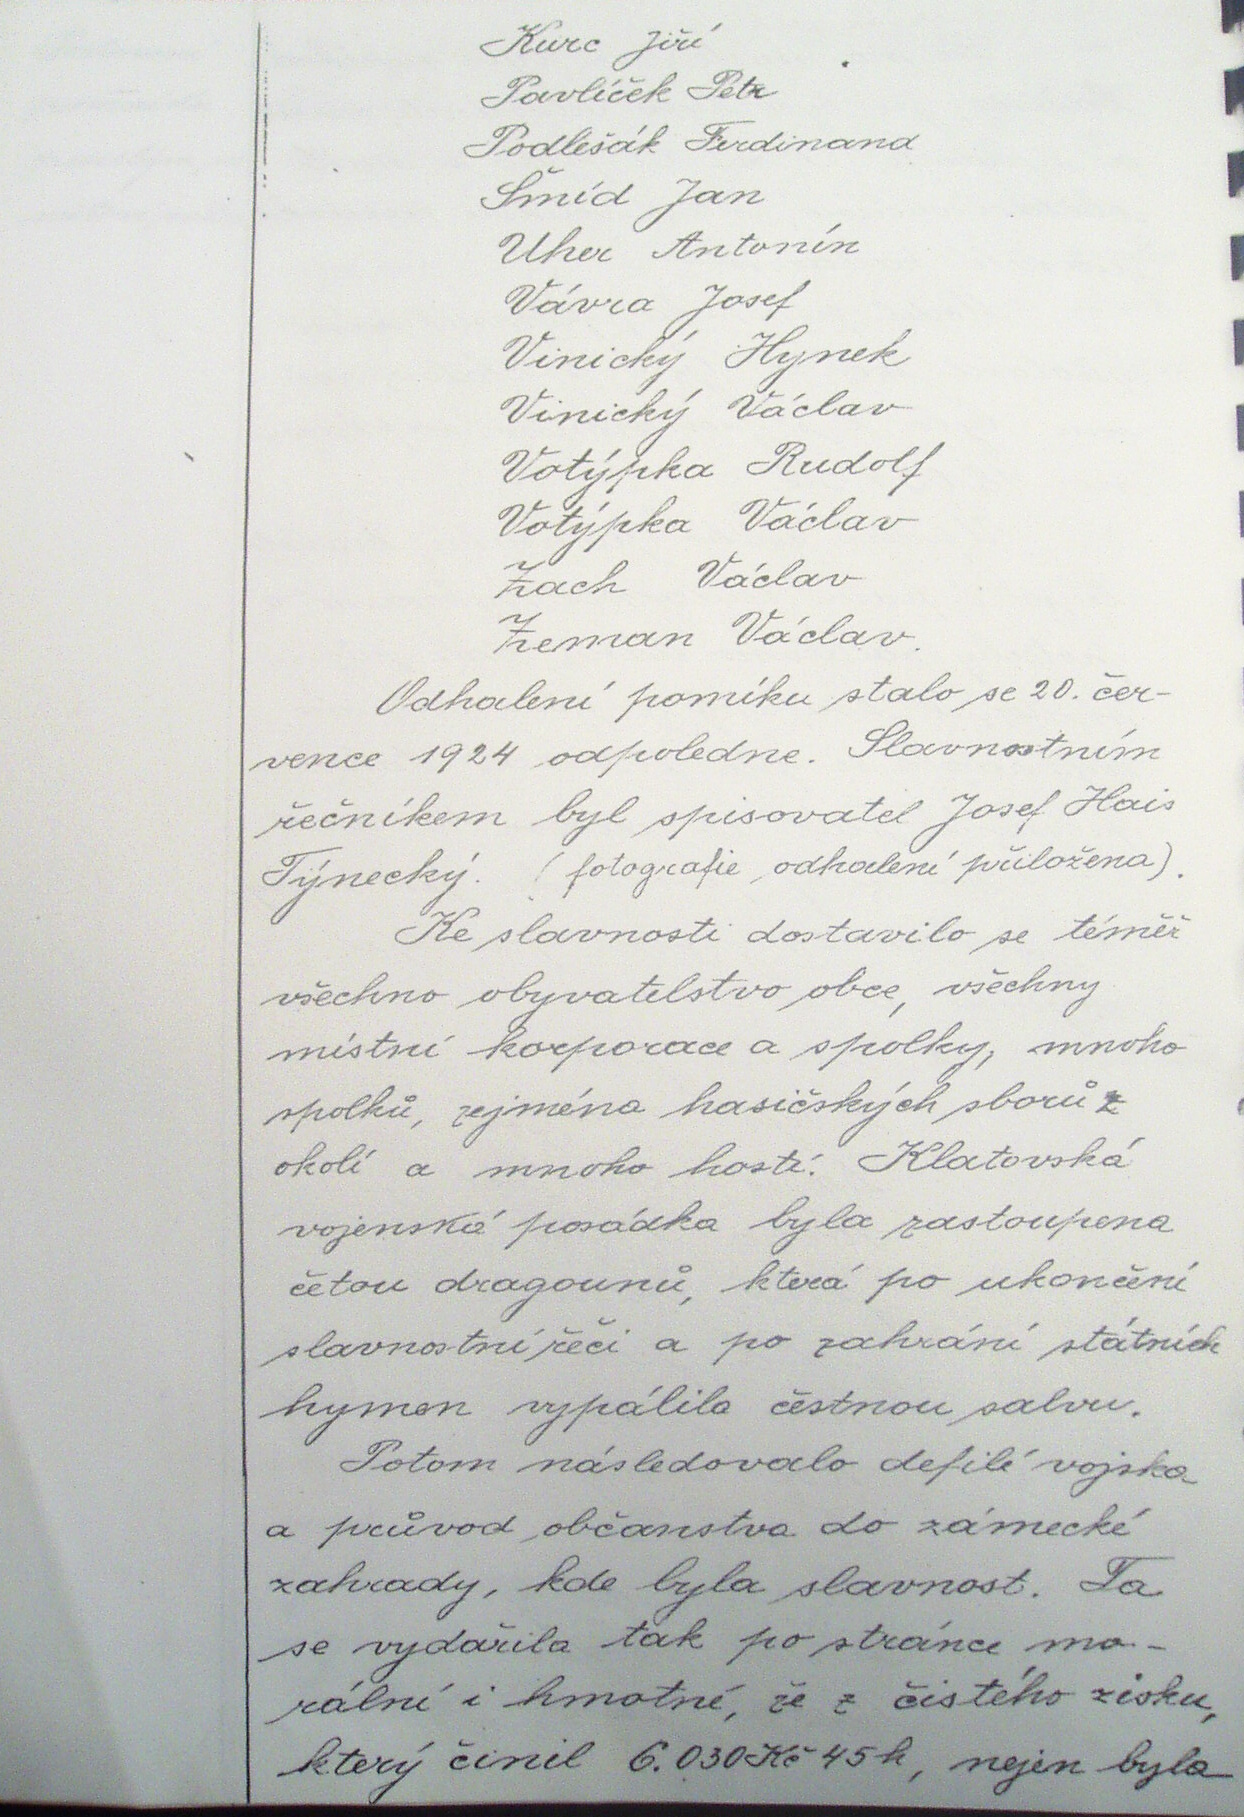 Kurc Jiří
Pavlíček Petr
Podlešák Ferdinand
Šmíd Jan
Uher Antonín
Vávra Josef
Vinický Hynek
Vinický Václav
Votýpka Rudolf
Votýpka Václav
Zach Václav
Zeman Václav.
Odhalení pomíku stalo se 20. čer-
vence 1924 odpoledne. Slavnostním
řečníkem byl spisovatel Josef Hais
Týnecký. (fotografie odhalení přiložena).
Ke slavnosti dostavilo se téměř
všechno obyvatelstvo obce, všechny
místní korporace a spolky, mnoho
spolků, zejména hasičských sborů z
okolí a mnoho hostí. Klatovská
vojenská posádka byla zastoupena
četou dragounů, která po ukončení
slavnostní řeči a po zahrání státních
hymen vypálila čestnou salvu.
Potom následovalo defilé vojska
a průvod občanstva do zámecké
zahrady, kde byla slavnost. Ta
se vydařila tak po stránce mo-
rální i hmotné, že z čistého zisku,
který činil 6.030 Kč 45 h, nejen byla